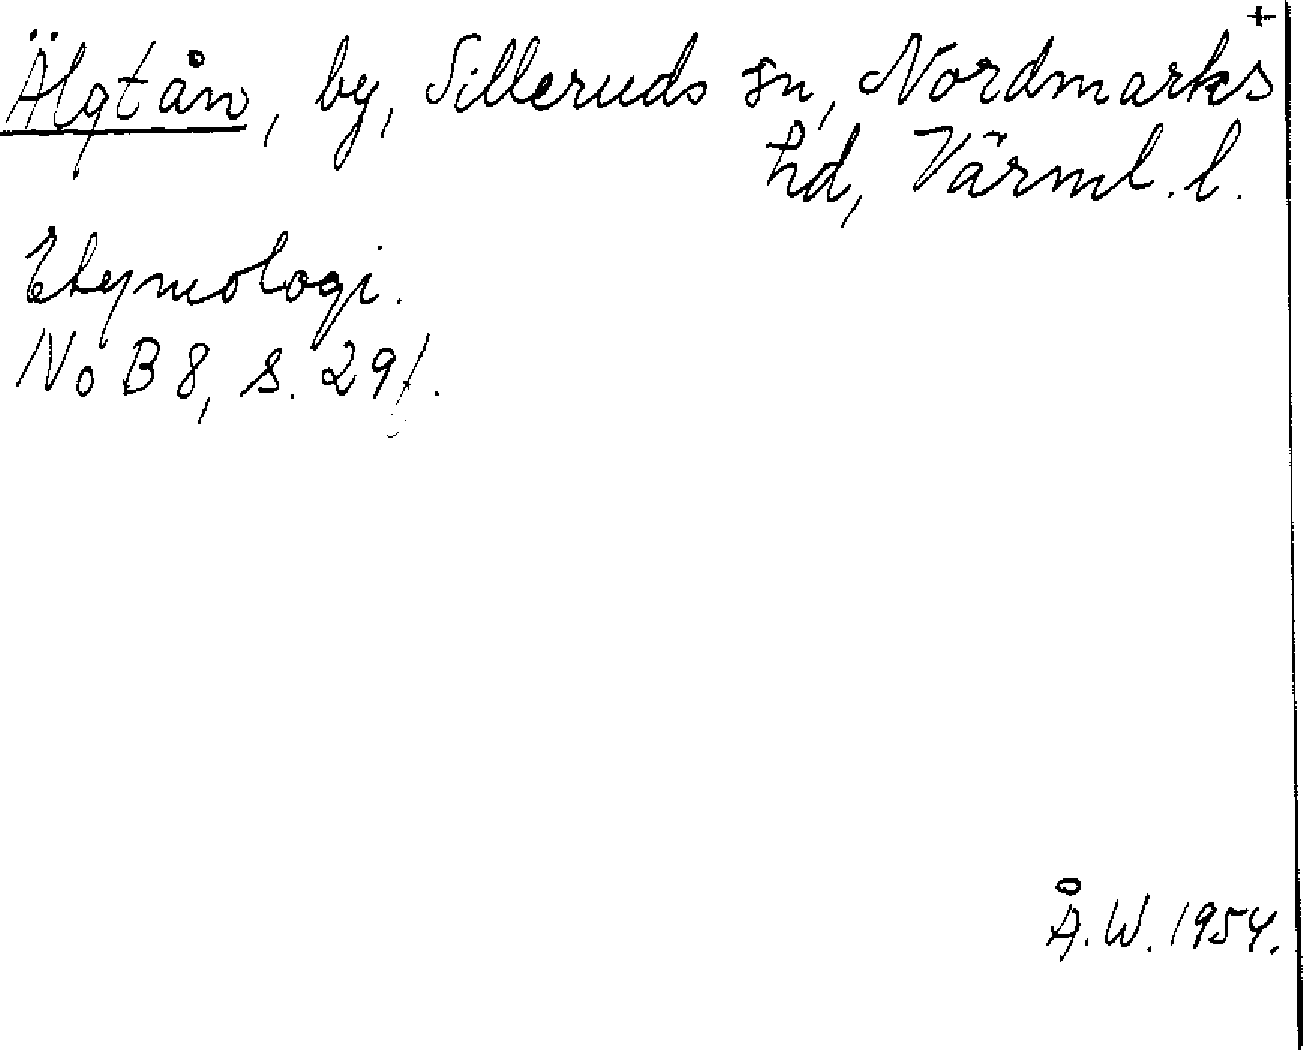 +
Älgtån, by, Silleruds sn, Nordmarks
hd, Värml. l.
Etymologi.
NoB 8, s. 291.
Å.W. 1954.